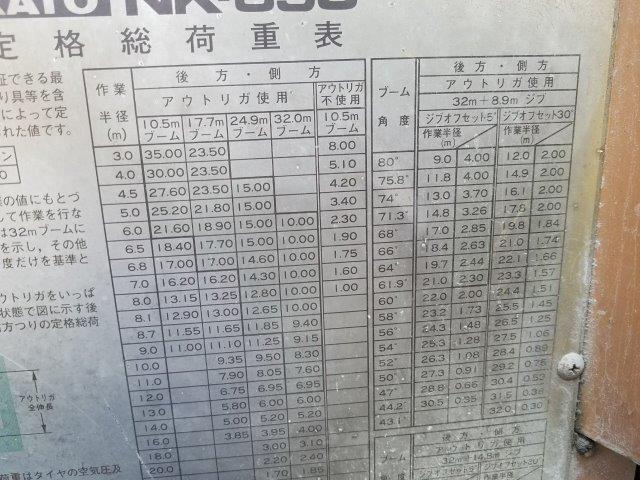 定格総荷重表
作業半径(m)
後方・側方
アウトリガ使用
アウトリガ不使用
10.5mブーム 17.7mブーム 24.9mブーム 32.0mブーム 10.5mブーム
3.0 35.00 23.50 8.00
4.0 30.00 23.50 5.10
4.5 27.60 23.50 15.00 4.20
5.0 25.20 21.80 15.00 3.40
6.0 21.60 18.90 15.00 10.00 2.30
6.5 18.40 17.70 15.00 10.00 1.90
6.8 17.00 17.00 14.60 10.00 1.75
7.0 16.20 16.20 14.30 10.00 1.60
8.0 13.15 13.25 12.80 10.00 1.00
8.1 12.90 13.00 12.65 10.00
8.7 11.55 11.65 11.85 9.40
9.0 11.00 11.10 11.25 9.15
10.0 9.35 9.50 8.30
11.0 7.90 8.05 7.60
12.0 6.75 6.95 6.95
13.0 5.80 6.00 6.00
14.0 5.00 5.20 5.20
16.0 3.85 3.95 4.00
3.00 3.10
18.0 2.20 2.40
20.0 1.70 1.85
ブーム角度
後方・側方
アウトリガ使用
32m+8.9mジブ
ジブオフセット5° ジブオフセット30°
作業半径(m) 作業半径(m)
80° 9.0 4.00 12.0 2.00
75.8° 11.8 4.00 14.9 2.00
74° 13.0 3.70 16.1 2.00
71.3° 14.8 3.26 17.8 2.00
68° 17.0 2.85 19.8 1.84
66° 18.4 2.63 21.0 1.74
64° 19.7 2.44 22.1 1.66
61.9° 21.0 2.30 23.3 1.57
60° 22.0 2.00 24.4 1.51
58° 23.2 1.73 25.5 1.45
56° 24.3 1.48 26.5 1.25
54° 25.3 1.28 27.5 1.06
52° 26.3 1.08 28.4
50° 27.3 0.91 29.2
47° 28.8 0.66 30.4
44.2° 30.5 0.35 31.5
43.1° 32.0 0.30
後方・側方
アウトリガ使用
32m+14.9mジブ
ブーム角度
ジブオフセット5° ジブオフセット30°
証できる最
り具等を含
によって定
れた値です。
の値にもとづ
して作業を行な
は32mブームに
を示し，その他
度だけを基準と
ウトリガをいっぱ
状態で図に示す後
方つりの定格総荷
アウトリガ全伸長
荷重はタイヤの空気圧及